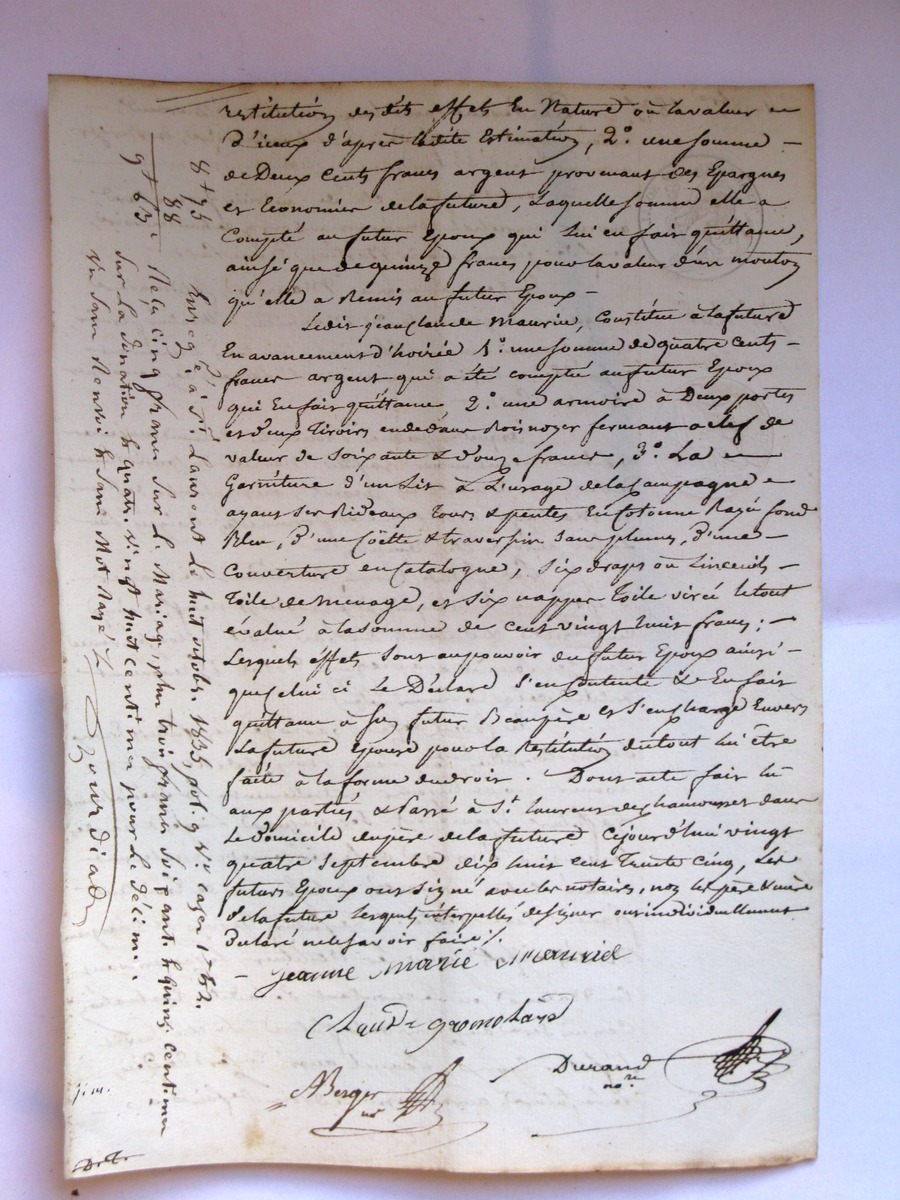 restitution desdits effets En Nature ou la valeur
d'iceux d'après ladite Estimation, 2o. une somme
de Deux cents francs argent provenant des Epargnes
et Economies de la future, Laquelle somme elle a
Compté au futur Epoux qui lui en fait quittance,
ainsi que de quinze francs pour la valeur d'un mouton
qu'elle a Remis au futur Epoux -
Ledit jean Claude Mauvrie, Constitue à la future
En avancement d'hoirie 1o. une somme de quatre cents
francs argent qui a été compté au futur Epoux
qui En fait quittance 2o. une armoire à Deux portes
et deux Tiroirs en dedans Bois noyer fermant a clef de
valeur de soixante & douze francs, 3o. La
Garniture d'un Lit à L'usage de la Campagne
ayant ses Rideaux Tours & pentes En Cotonne Rayé fond
Bleu, d'une Coëtte & traversin sans plumes, d'une
Couverture en Catalogne, six draps ou Linceuils
Toile de menage, et six nappes Toile le tout
évalué à la somme de cent vingt huit francs; -
Lesquels éffets sont au pouvoir du futur Epoux ainsi
que celui ci Le Déclare s'en Contente & En fait
quittance à son futur Beaupère et s'en charge Envers
La future Epouse pour la restitution du tout lui être
faite à la forme du droit. Dont acte fait lû
aux parties & Passé à St. Laurent de chamousset dans
Le Domicile du père de la future Cejourd'hui vingt
quatre septembre dix huit cent Trente Cinq, Les
futurs Epoux ont signé avec les notaires, non les père & mère
de la future lesquels interpellés de signer ont individuellement
Déclaré ne le savoir faire /.
Jeanne Marie Mauvrie
Claude
Durand
nre
ABerger
nre
8 + 95
88
9 + 83
Enreg. à St. Laurent Le huit octobre 1835, fol. 9 Vo. cases 1 & 2.
Reçu cinq francs sur Le Mariage, plus trois francs soixante & quinze centimes
sur La donation & quatre vingt huit centimes pour Le décime.
Vu sans Renvoi & sans Mot Rayé